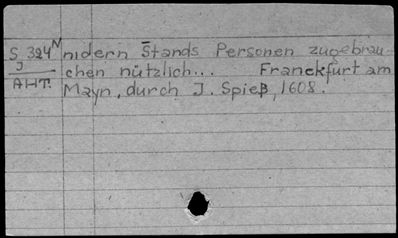 S 324 N nidern Stands Personen zugebrau-
J chen nützlich... Franckfurt am
AHT. Mayn, durch J. Spieß, 1608.